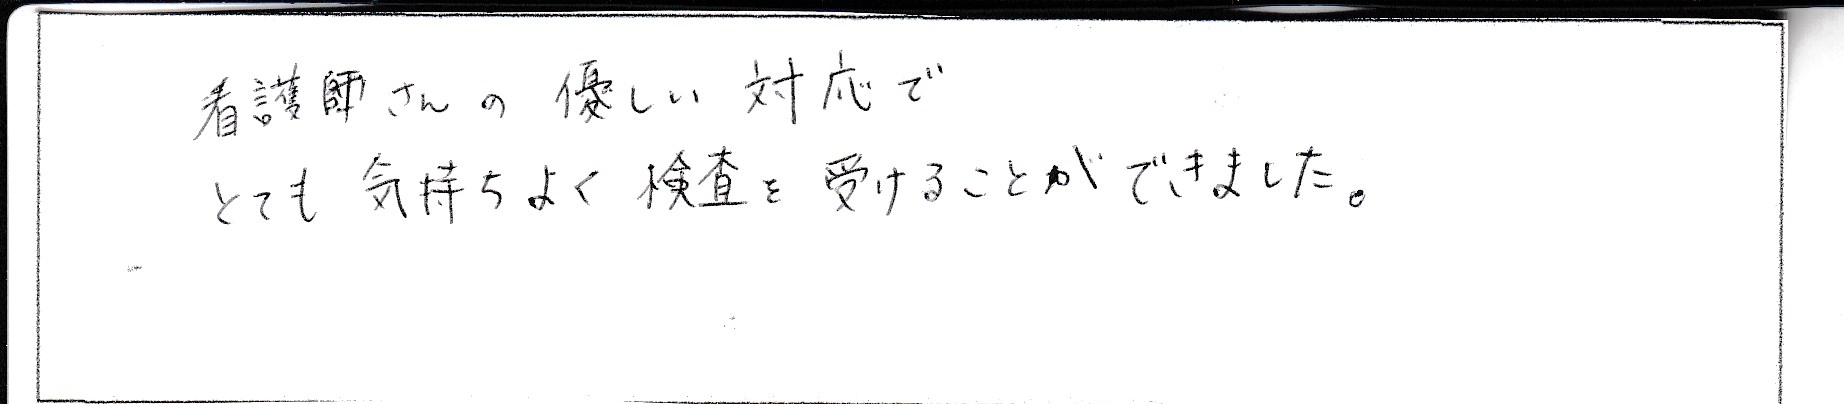 看護師さんの優しい対応で
とても気持ちよく検査を受けることができました。